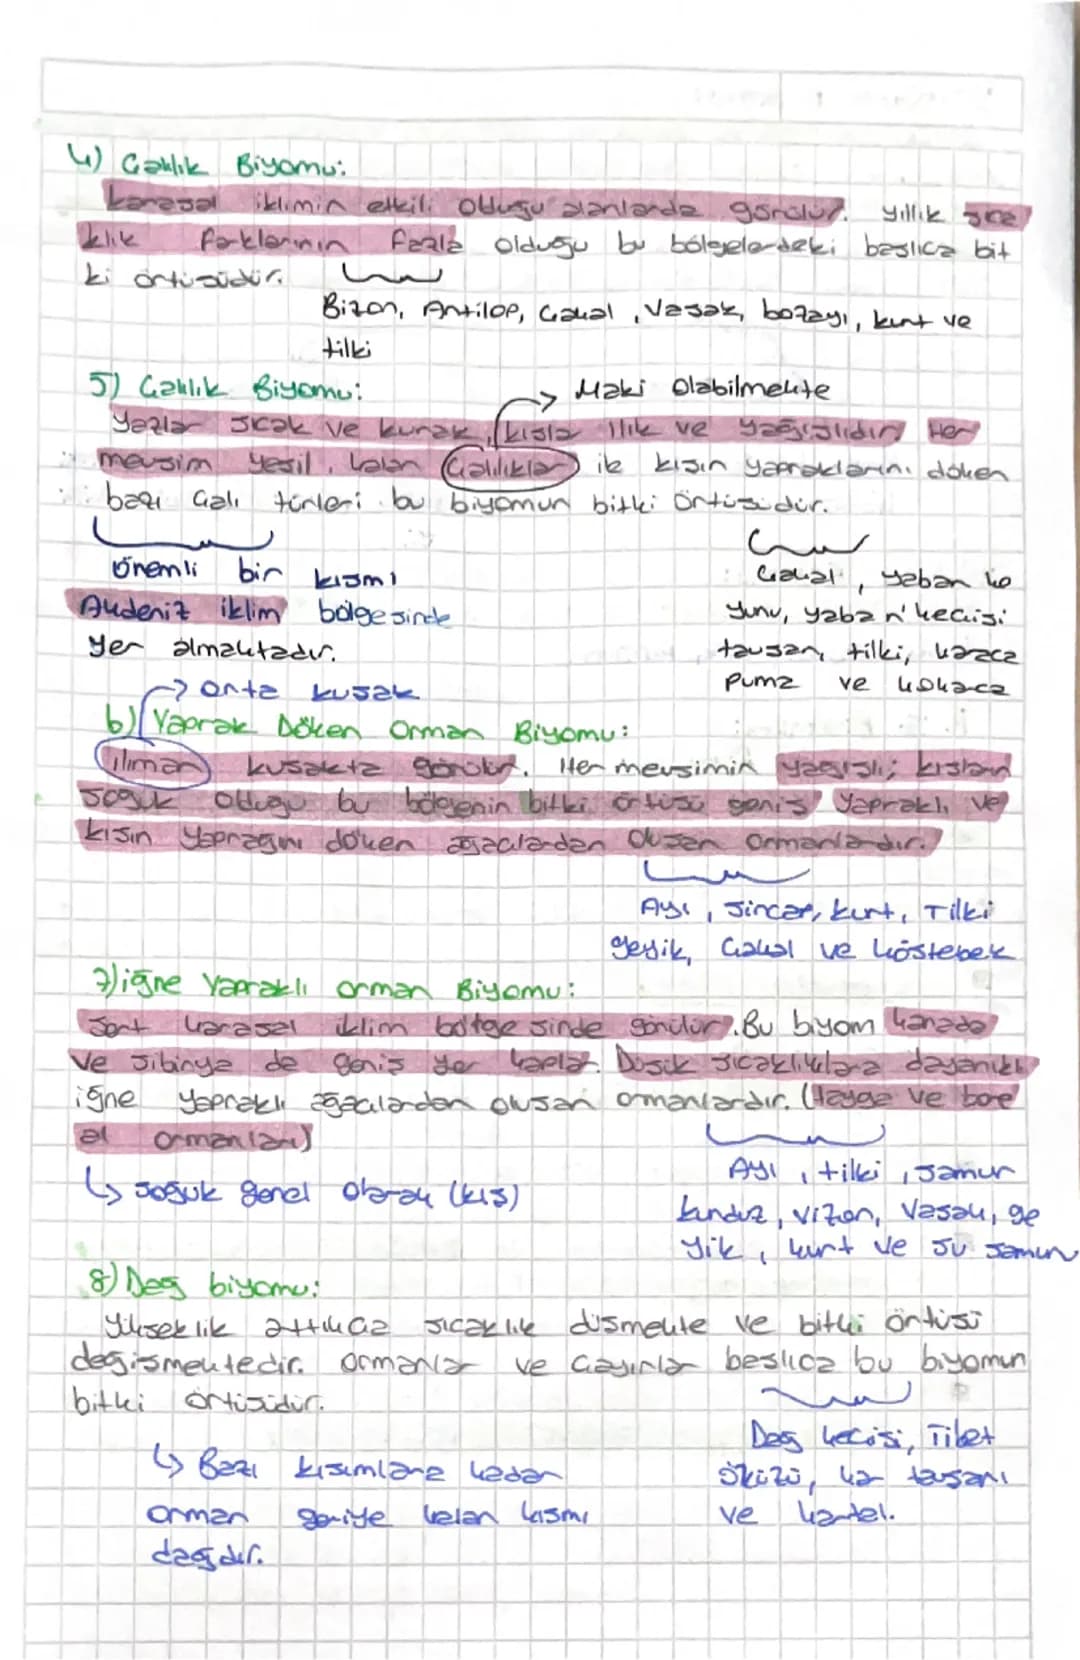 4) Çalılık Biyomu:
karasal iklimin etkili olduğu alanlarda görülür. Yıllık sıca
klık farklarının fazla olduğu bu bölgelerdeki başlıca bit
ki örtüsüdür.
Bizon, Antilop, Çakal, Vaşak, bozayı, kurt ve
tilki
5) Çalılık Biyomu:
→ Maki olabilmekte
Yazlar sıcak ve kurak, kışlar ılık ve yağışlıdır. Her
mevsim yeşil kalan çalılıklar ile kışın yapraklarını döken
bazı çalı türleri bu biyomun bitki örtüsüdür.
önemli bir kısmı
Akdeniz iklim bölgesinde
yer almaktadır.
Çakal, yaban ko
yunu, yaban keçisi
tavşan, tilki, karaca
puma ve kokarca
→ orta kuşak
6) Yaprak Döken Orman Biyomu:
ılıman kuşakta görülür. Her mevsimin yağışlı; kışların
soğuk olduğu bu bölgenin bitki örtüsü geniş yapraklı ve
kışın yaprağını döken ağaçlardan oluşan ormanlardır.
Ayı, sincap, kurt, Tilki
geyik, Çakal ve köstebek
7) iğne Yapraklı orman Biyomu:
Sert karasal iklim bölgesinde görülür. Bu biyom kanada
ve sibirya da geniş yer kaplar. Düşük sıcaklıklara dayanıklı
iğne yapraklı ağaçlardan oluşan ormanlardır. (tayga ve bore
al ormanları)
↳ soğuk genel olarak (kış)
Ayı, tilki, samur
kunduz, vizon, Vaşak, ge
yik, kurt ve su samuru
8) Dağ biyomu:
Yükseklik arttıkça sıcaklık düşmekte ve bitki örtüsü
değişmektedir. ormanlar ve çayırlar başlıca bu biyomun
bitki örtüsüdür.
↳ Bazı kısımlara kadar
orman geriye kalan kısmı
dağdır.
Dağ keçisi, Tibet
öküzü, kar tavşanı
ve kartal.